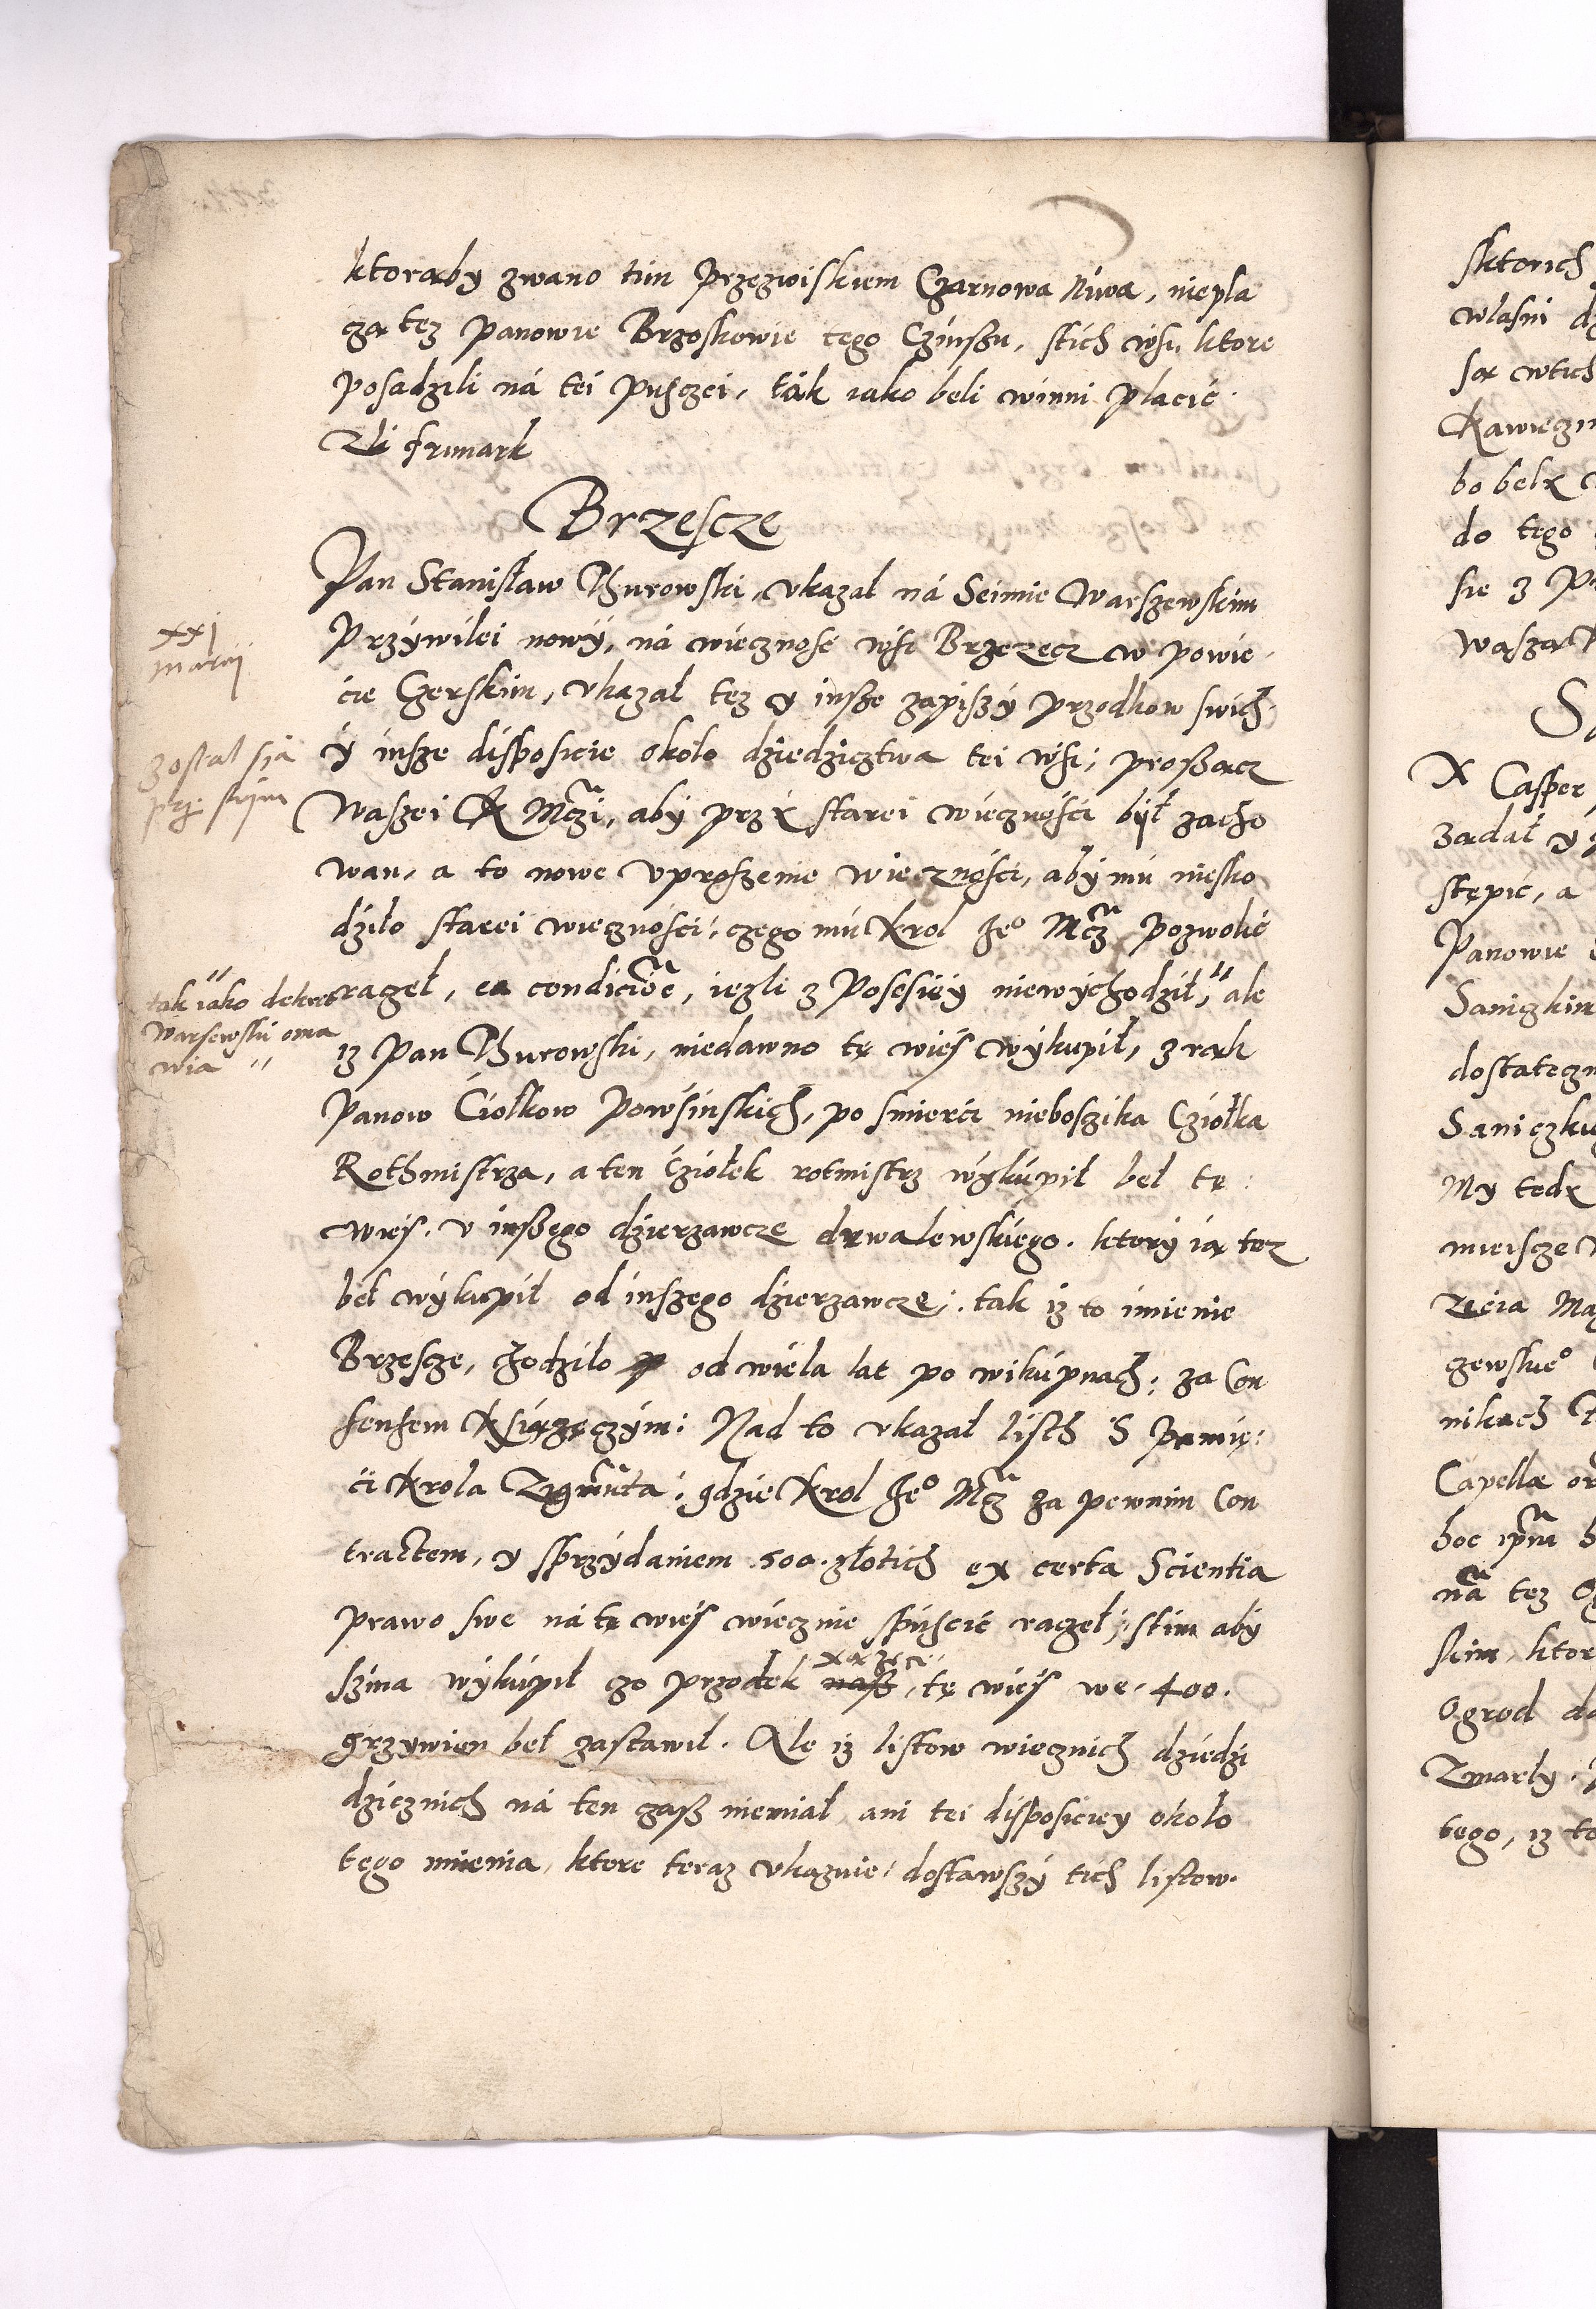 ktorąby zwano tim Przezwiskiem Czarnowa Niwa, niepla
czą tez Panowie Brzoskowie tego Czinszu, stich wsu ktore
posadzili ná tei puszczei, ták iako beli winni placić.
Zli frimark
Brzescze
Pan Stanisław Thurowski, vkazal ná Seimie Warszewskim
Przÿwilei nowÿ, ná wieczność wsi Brzezecz w powie
cie Czerskim, vkazał tez y insze zapiszÿ przodkow swich
ÿ insze disposicie około dziedzicztwa tei wsi, proszącz
Waszei K Mczi, abÿ przÿ starei wiecznosci bÿł zacho
wan, a to nowe vproszenie wiecznosci, abÿ mu niesko
dziło starei wiecznosci, czego mu Krol Jeº Mcz pozwolić
raczeł, ea condicioe, iezli z Posesiÿy niewÿchodził," ale
iz Pan Thurowski, niedawno tę wies wÿkupił, z rąk
Panow Ciołkow Powsinskich, po smierci nieboszika Cziołka
Rothmistrza, a ten Cziołek rotmistrz wÿkupił beł tę
wies. v inszego dzierzawcze drwalewskiego. ktorÿ ią tez
beł wÿkupił od inszego dzierzawcze, tak iz to imienie
Brzescze, chodziło od wiela lat po wikupnach, za Con
sensem Ksiązęczÿm: Nad to vkazał listh S Pamię:
ci Krola Zigmuta, gdzie Krol Jeº Mcz za pewnim Con
tractem, y sprzÿdaniem .500. złotich ex certa Scientia
prawo swe ná tę wies wiecznie spuscić raczeł, stim abÿ
szina wÿkupił czo przodek nasz xxzęce, tę wies we .400.
grzywien beł zastawił. Ale iz listow wiecznich dziedzi
dzicznich ná ten czasz niemiał ani tei disposiciey około
tego mienia, ktore teraz vkazuie, dostawszÿ tich listow.
xxj
marcij
zostal się
prz swÿm
"tak iako dekret
Warsewski oma
wia "
sktorich
własni
Kawiecz
do tego
sie z
X Casper
Ządał y
stępić, a
Panowie
Saniczkin
dostatecz
My tedÿ
mieiscze
nikach
Capella
hoc
tez
skim, ktor
Ogrod
Zmarły.
tego, iz to